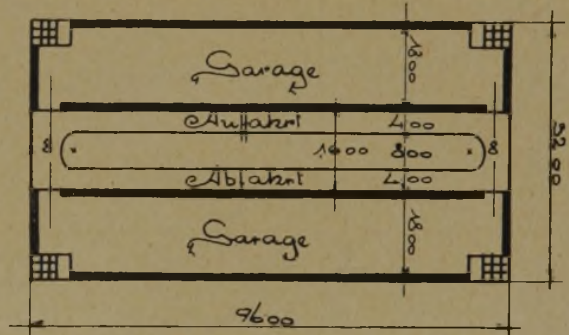 Garage 1800
Auffahrt 400
8 1600 800 8
Abfahrt 400
Garage 1800
5200
9600